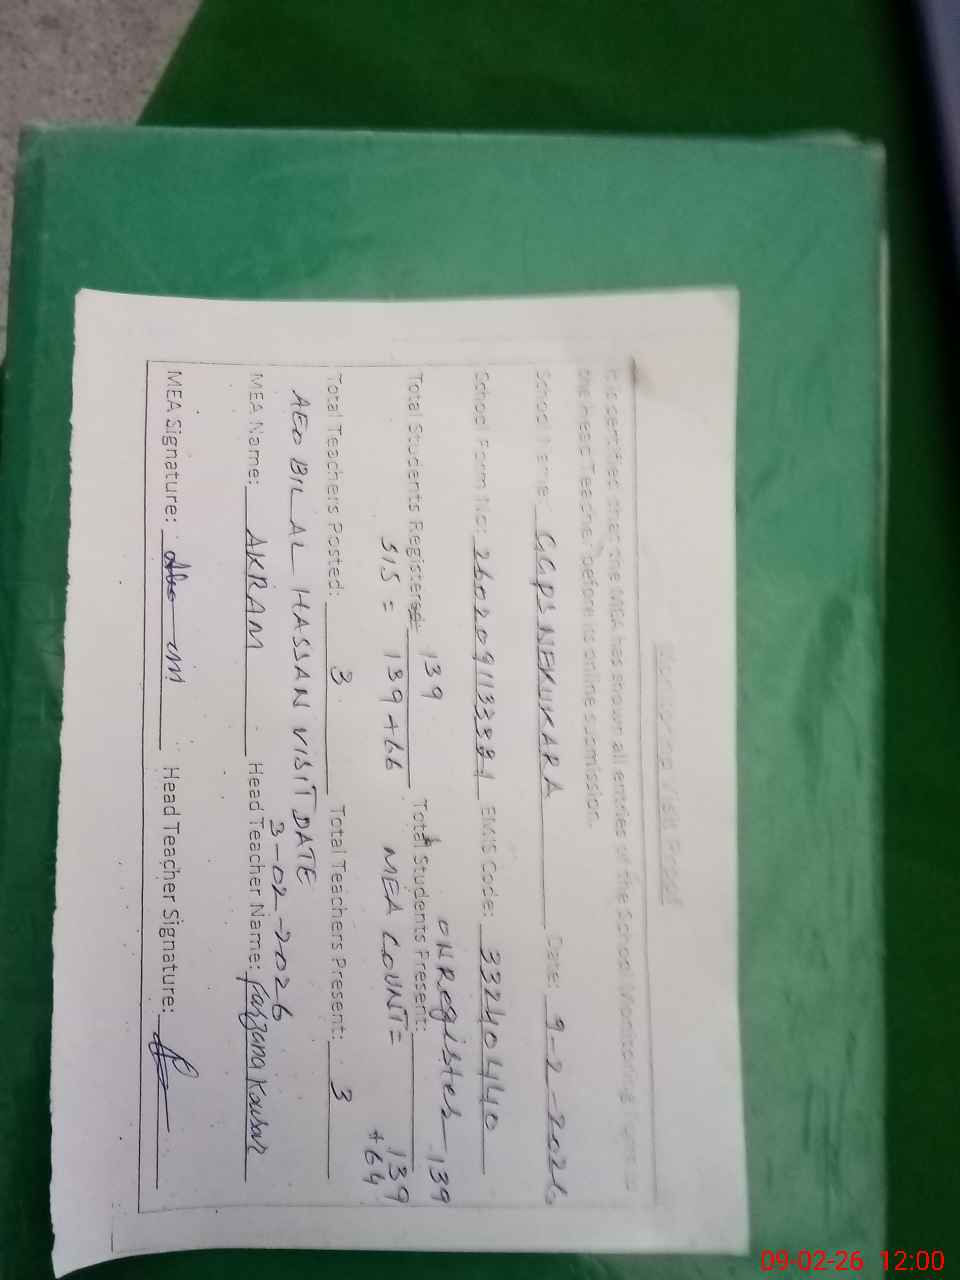 Monitoring Visit Proof
It is certified that the MEA has shown all entries of the School Monitoring Form to
the Head Teacher before its online submission.
School Name: GGPS NEKUKARA Date: 9-2-2026
School Form No: EMIS Code: 33240440
ON Register - 139
Total Students Registered: 139 Total Students Present: 139
SIS = 139+66 MEA COUNT = +64
Total Teachers Posted: 3 Total Teachers Present: 3
AEO BILAL HASSAN VISIT DATE
3-02-2026
MEA Name: AKRAM Head Teacher Name: Farzana Kousar
MEA Signature: Head Teacher Signature:
09-02-26 12:00